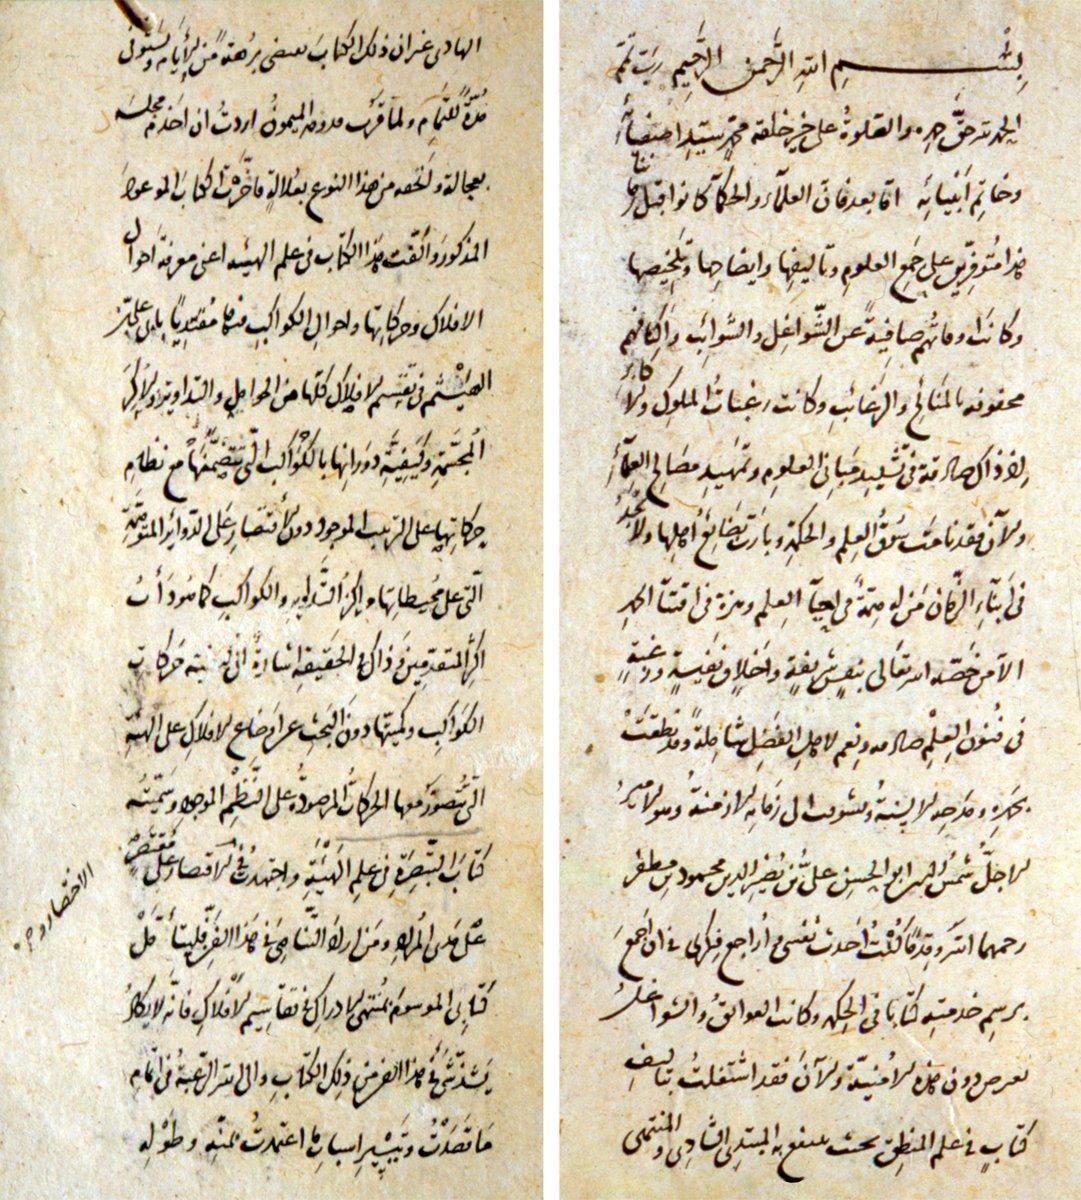 بسم الله الرحمن الرحيم رب تمم
الحمد لله حق حمده والصلوة على خير خلقه محمد سيد اصفيائه
وخاتم انبيائه اما بعد فان العلماء والحكماء كانوا قبل
هذا متوفرين على جمع العلوم وتاليفها وايضاحها وتلخيصها
وكانت اوقاتهم صافية عن الشواغل والشوائب واكنافهم
محفوفة بالمنائح والرغائب وكانت رغبات الملوك والاكابر
اذ ذاك صادقة في تشييد مباني العلوم وتمهيد مصالح العلماء
والآن فقد نامت سوق العلم والحكمة وبارت بضائع اهلها ولا نجد
في ابناء الزمان من له همة في احياء العلم وهزة في اقتناء
الا من خصه الله تعالى بنفس شريفة واخلاق نفيسة ورغبة
في فنون العلم صادقة ونعم لاهل الفضل شاملة وقد نطقت
بحمده ومدحه الالسنة وتشوفت الى زمانه الازمنة وهو الامير
الاجل شمس الدين ابو الحسن علي بن نصير الدين محمود بن مظفر
رحمهما الله وقدما كنت احدث نفسي واراجع فكري في ان اجمع
برسم خدمته كتابا في الحكمة وكانت العوائق والشواغل
تعرض دون هذه الامنية والآن فقد اشتغلت بتاليف
كتاب في علم المنطق بحيث ينتفع به المبتدي الشادي والمنتهى
الهادي غير ان ذلك الكتاب يقتضي برهة من الايام ويستوفي
مدة للتمام ولما قرب قدومه الميمون اردت ان اخدم مجلسه
بعجالة واتحفه من هذا النوع بعلالة فاخرت الكتاب الموعود
المذكور والفت هذا الكتاب في علم الهيئة اعني معرفة احوال
الافلاك وحركاتها واحوال الكواكب فيها مقتديا بابي علي بن
الهيثم في تقسيم الافلاك كلها من الحوامل والتداوير والاكر
المجسمة وكيفية دورانها بالكواكب التي تتضمنها مع نظام
حركاتها على الترتيب الموجود دون الاقتصار على الدوائر المتوهمة
التي على محيطاتها واكر التداوير والكواكب كما هو دأب
اكثر المتقدمين وذاك في الحقيقة اشارة الى كيفية حركات
الكواكب وكميتها دون البحث عن اوضاع الافلاك على الهيئة
التي تتصور معها الحركات المرصودة على النظم الموجود وسميته
كتاب التبصرة في علم الهيئة واجتهدت في الاقتصار على مقتضى
علي هدى المراد ومن اراد التناهي في هذا الفن فليتأمل
كتابي الموسوم بمنتهى الادراك في تقاسيم الافلاك فانه لا يكاد
يشذ شيء في هذا الفن من ذلك الكتاب والى الله الرغبة في اتمام
ما قصدت وتيسير اسباب ما اعتمدت بمنه وطوله
الاختصار دون